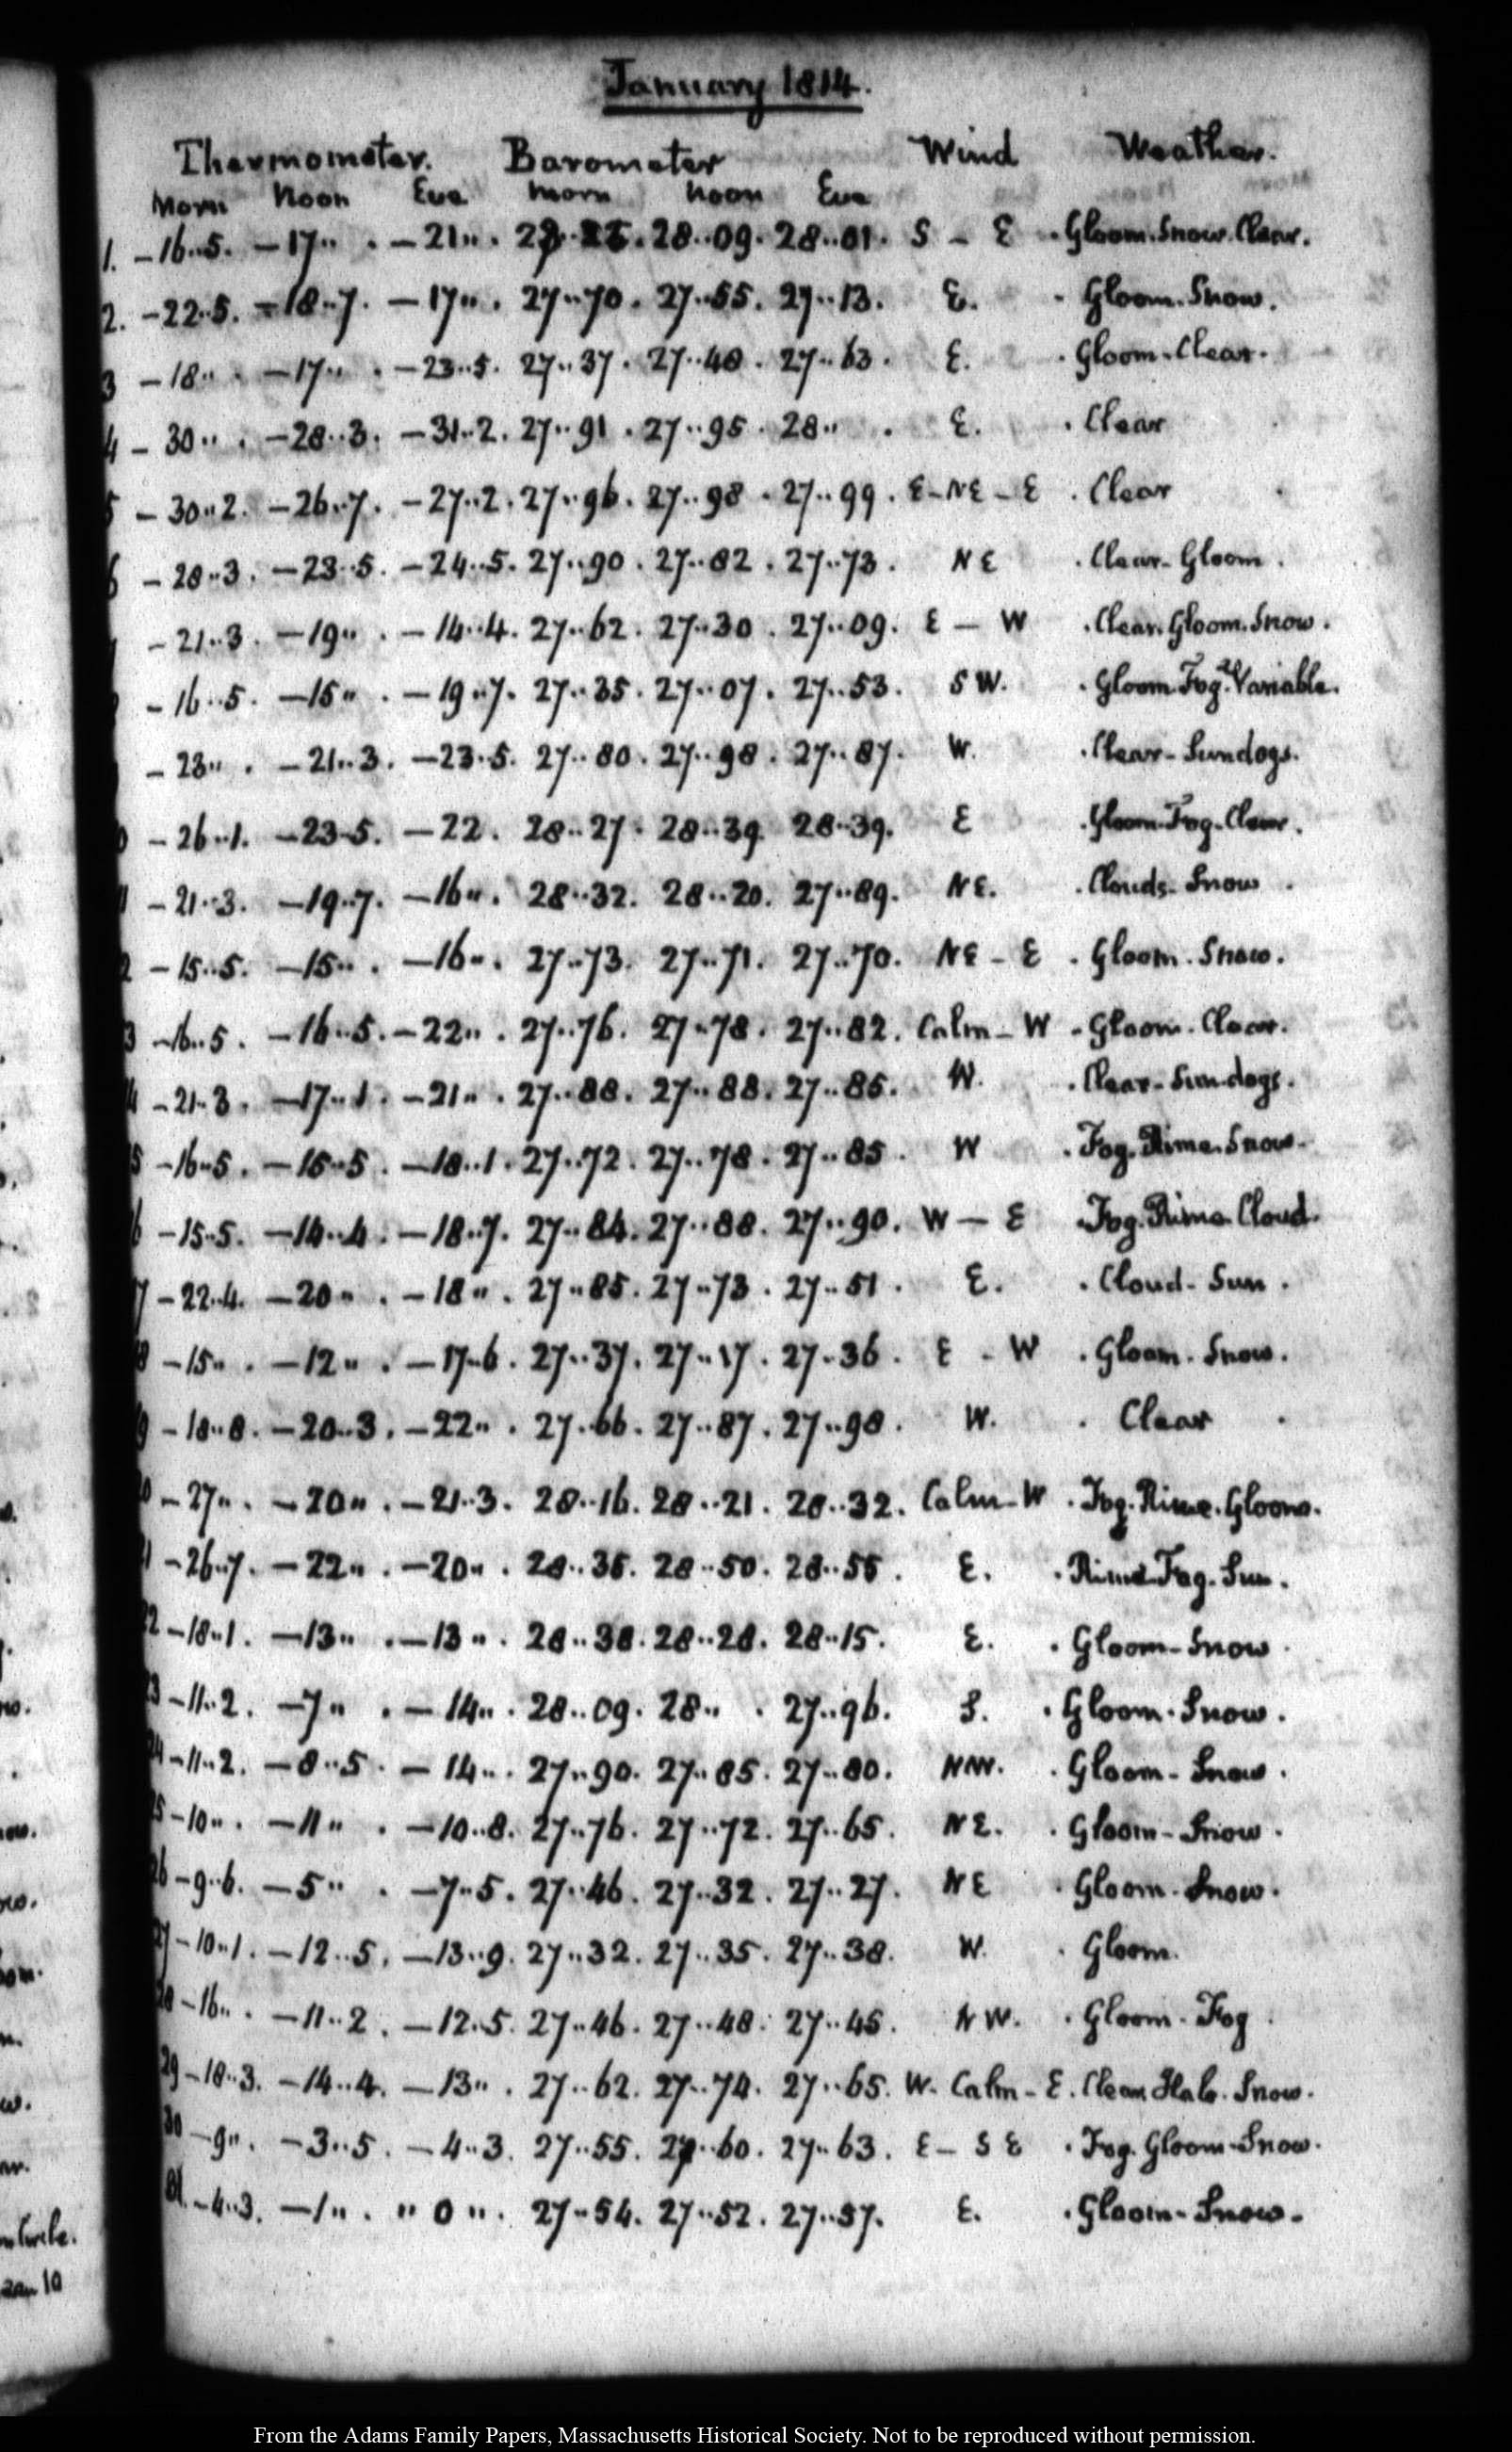 January 1814.
Thermometer. Barometer Wind Weather.
Morn Noon Eve Morn Noon Eve
1. -16..5. -17.. . -21.. . 28..09. 28..01. S - E . Gloom. Snow. Clear.
2. -22..5. -18..7. -17.. . 27..70. 27..55. 27..13. E. . Gloom. Snow.
3 -18.. . -17.. . -23..5. 27..37. 27..48. 27..63. E. . Gloom. Clear.
4 -30.. . -28..3. -31..2. 27..91. 27..95. 28.. . E. . Clear
5 -30..2. -26..7. -27..2. 27..96. 27..98. 27..99. E-NE-E . Clear
6 -28..3. -23..5. -24..5. 27..90. 27..82. 27..73. NE . Clear-Gloom.
-21..3. -19.. . -14..4. 27..62. 27..30. 27..09. E - W . Clear. Gloom. Snow.
-16..5. -15.. . -19..7. 27..35. 27..07. 27..53. SW. . Gloom Fog. Variable.
-23.. . -21..3. -23..5. 27..80. 27..98. 27..87. W. . Clear-Sundogs.
0 -26..1. -23..5. -22. 28..27. 28..39. 28..39. E . Gloom-Fog-Clear.
1 -21..3. -19..7. -16.. . 28..32. 28..20. 27..89. NE. . Clouds-Snow .
2 -15..5. -15.. . -16.. . 27..73. 27..71. 27..70. NE - E . Gloom. Snow.
3 -16..5. -16..5. -22.. . 27..76. 27..78. 27..82. Calm-W . Gloom. Clear.
4 -21..3. -17..1. -21.. . 27..88. 27..88. 27..85. W. . Clear-Sundogs.
5 -16..5. -15..5. -18..1. 27..72. 27..78. 27..85. W . Fog. Rime. Snow.
6 -15..5. -14..4. -18..7. 27..84. 27..88. 27..90. W - E . Fog. Rime Cloud.
7 -22..4. -20.. . -18.. . 27..85. 27..73. 27..51. E. . Cloud-Sun .
8 -15.. . -12.. . -17..6. 27..37. 27..17. 27..36. E - W . Gloom. Snow.
9 -18..8. -20..3. -22.. . 27..66. 27..87. 27..98. W. . Clear .
0 -27.. . -20.. . -21..3. 28..16. 28..21. 28..32. Calm-W . Fog. Rime. Gloom.
1 -26..7. -22.. . -20.. . 28..36. 28..50. 28..55. E. . Rime Fog. Sun.
2 -18..1. -13.. . -13.. . 28..38. 28..28. 28..15. E. . Gloom-Snow .
3 -11..2. -7.. . -14.. . 28..09. 28.. . 27..96. S. . Gloom. Snow.
4 -11..2. -8..5. -14.. . 27..90. 27..85. 27..80. NW. . Gloom-Snow.
5 -10.. . -11.. . -10..8. 27..76. 27..72. 27..65. NE. . Gloom-Snow.
26 -9..6. -5.. . -7..5. 27..46. 27..32. 27..27. NE . Gloom-Snow.
27 -10..1. -12..5. -13..9. 27..32. 27..35. 27..38. W. . Gloom.
28 -16.. . -11..2. -12..5. 27..46. 27..48. 27..45. NW. . Gloom-Fog .
29 -18..3. -14..4. -13.. . 27..62. 27..74. 27..65. W. Calm-E. Clear Halo. Snow.
30 -9.. . -3..5. -4..3. 27..55. 27..60. 27..63. E-SE . Fog. Gloom-Snow.
31. -4..3. -1.. . .. 0 .. . 27..54. 27..52. 27..57. E. . Gloom-Snow.
From the Adams Family Papers, Massachusetts Historical Society. Not to be reproduced without permission.